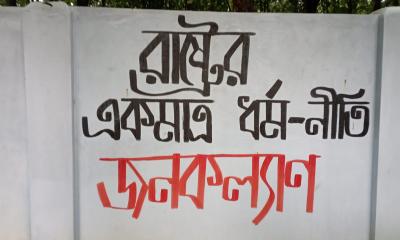 রাষ্ট্রের
একমাত্র ধর্ম-নীতি
জনকল্যাণ